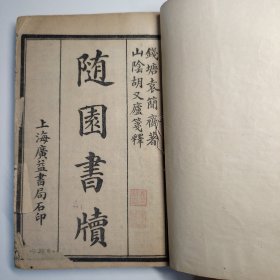 錢塘袁簡齋著
山陰胡又廬箋釋
随園書牘
上海廣益書局石印